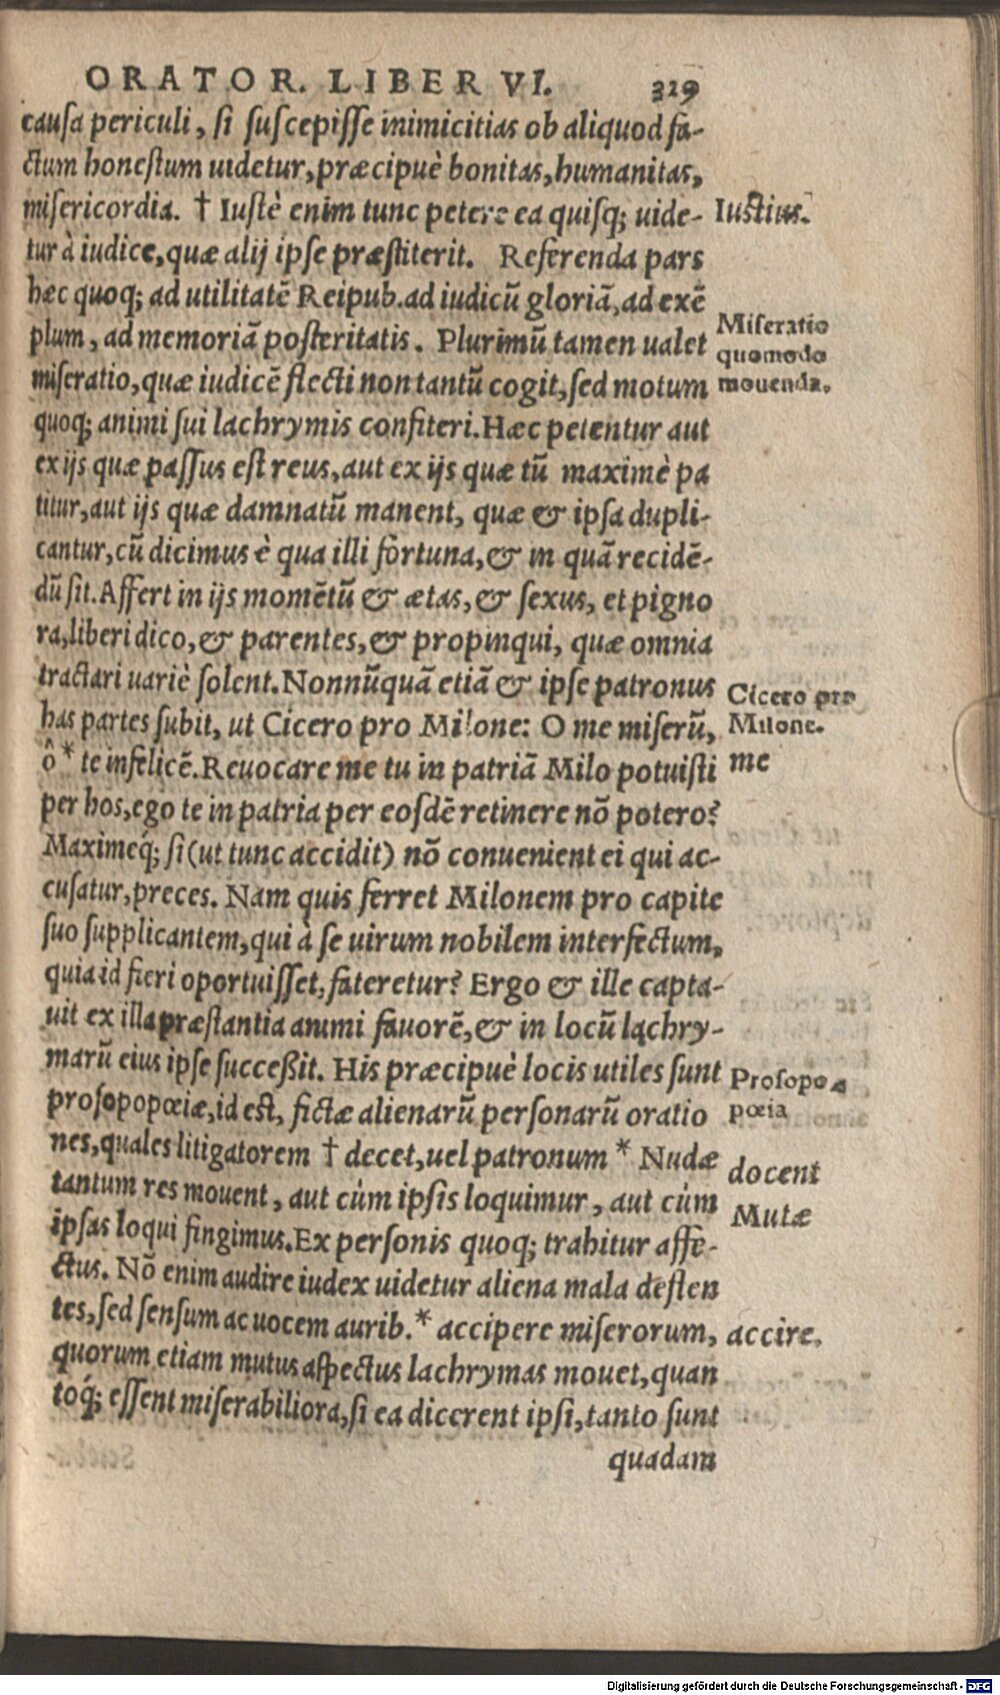 ORATOR. LIBER VI. 319
causa periculi, si suscepisse inimicitias ob aliquod fa-
ctum honestum uidetur, præcipuè bonitas, humanitas,
misericordia. † Iustè enim tunc petere ea quisq; uide-
Iustius.
tur à iudice, quæ alij ipse præstiterit. Referenda pars
hæc quoq; ad utilitatē Reipub. ad iudicū gloriā, ad exē
plum, ad memoriā posteritatis. Plurimū tamen ualet
Miseratio
quomodo
mouenda.
miseratio, quæ iudicē flecti non tantū cogit, sed motum
quoq; animi sui lachrymis confiteri. Hæc petentur aut
ex ijs quæ passus est reus, aut ex ijs quæ tū maximè pa
titur, aut ijs quæ damnatū manent, quæ & ipsa dupli-
cantur, cū dicimus è qua illi fortuna, & in quā recidē-
dū sit. Affert in ijs momētū & ætas, & sexus, et pigno
ra, liberi dico, & parentes, & propinqui, quæ omnia
tractari uariè solent. Nonnūquā etiā & ipse patronus
Cicero pro
Milone.
has partes subit, ut Cicero pro Milone: O me miserū,
ô * te infelicē. Reuocare me tu in patriā Milo potuisti
me
per hos, ego te in patria per eosdē retinere nō potero?
Maximeq́; si (ut tunc accidit) nō conuenient ei qui ac-
cusatur, preces. Nam quis ferret Milonem pro capite
suo supplicantem, qui à se uirum nobilem interfectum,
quia id fieri oportuisset, fateretur? Ergo & ille capta-
uit ex illa præstantia animi fauorē, & in locū lachry-
marū eius ipse successit. His præcipuè locis utiles sunt
Prosopo
pœia
prosopopœiæ, id est, fictæ alienarū personarū oratio
nes, quales litigatorem † decet, uel patronum * Nudæ
docent
Mutæ
tantum res mouent, aut cùm ipsis loquimur, aut cùm
ipsas loqui fingimus. Ex personis quoq; trahitur affe-
ctus. Nō enim audire iudex uidetur aliena mala deflen
tes, sed sensum ac uocem aurib. * accipere miserorum,
accire.
quorum etiam mutus aspectus lachrymas mouet, quan
toq́; essent miserabiliora, si ea dicerent ipsi, tanto sunt
quadam
Digitalisierung gefördert durch die Deutsche Forschungsgemeinschaft - DFG